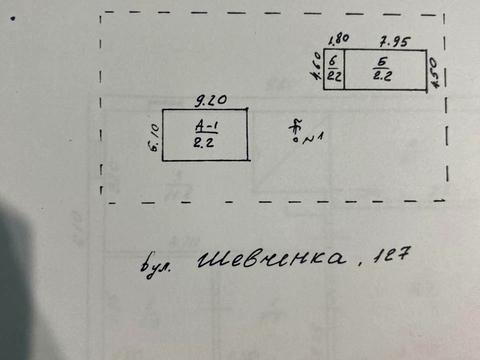 1.80 7.95
4.60 б/22 Б/2.2 4.50
9.20
6.10 А-1/2.2
№1
бул. Шевченка, 127